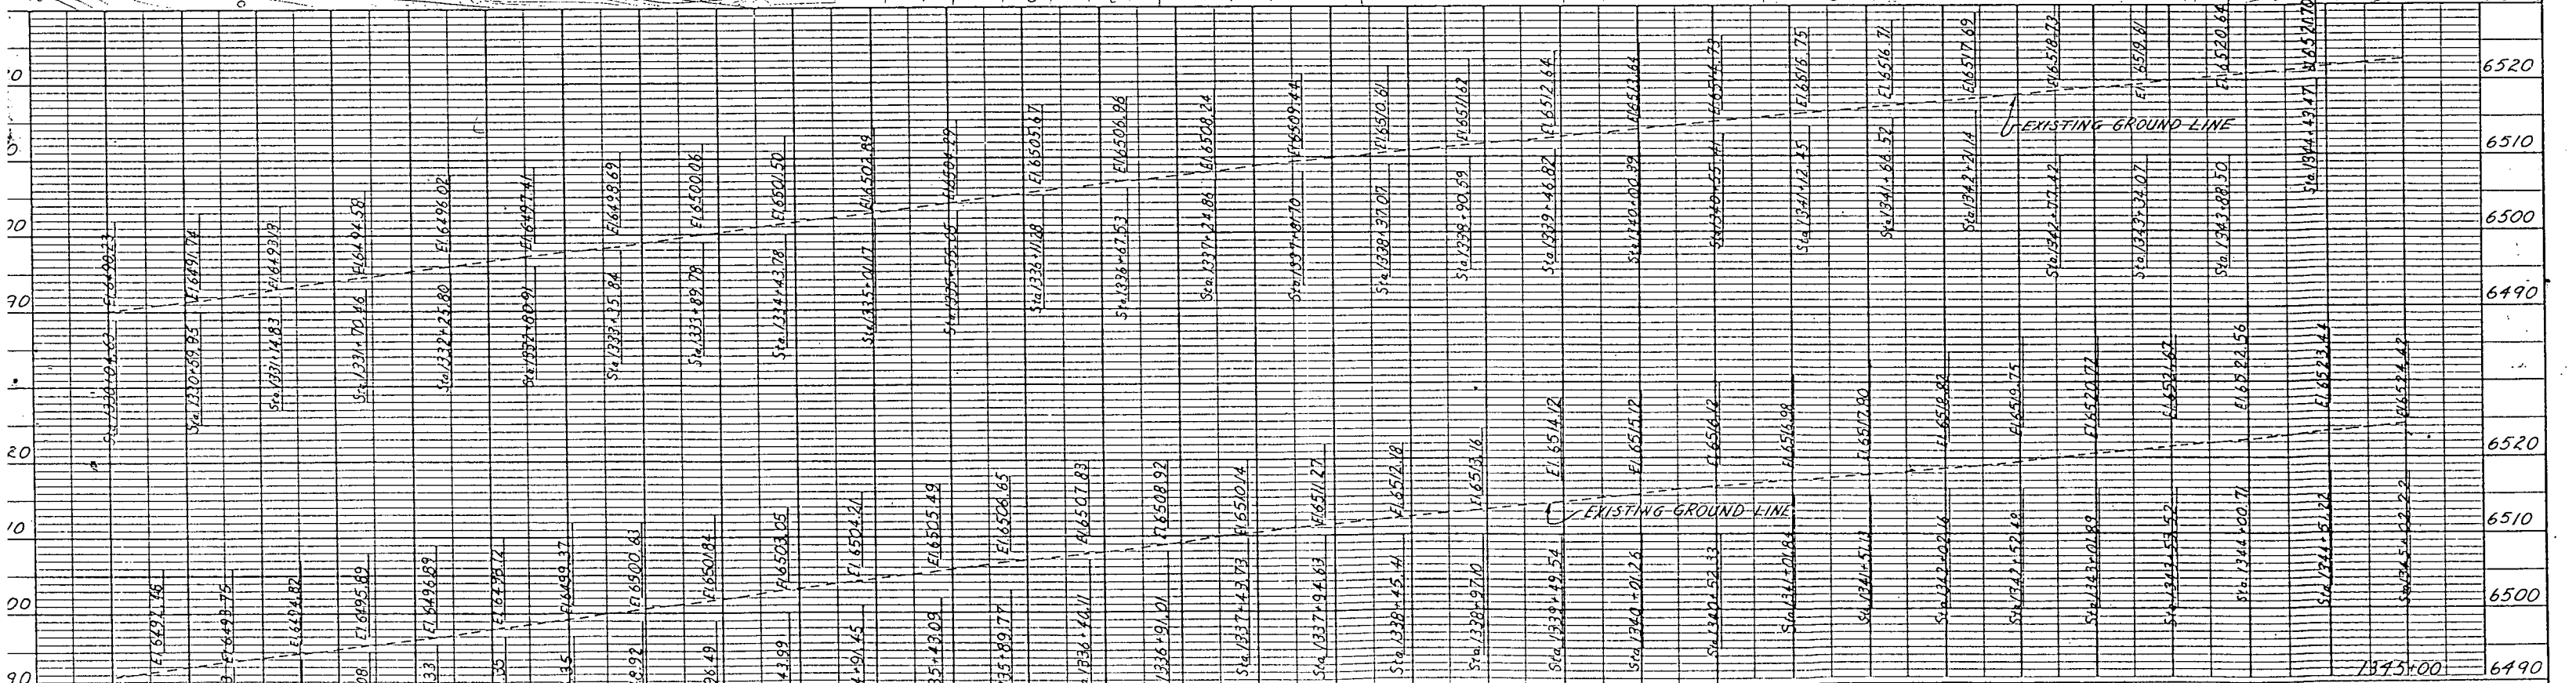 Sta.1330+04.63 El.6490.23
Sta.1330+59.95 El.6491.74
Sta.1331+14.83 El.6493.13
Sta.1331+70.46 El.6494.58
Sta.1332+25.80 El.6496.02
Sta.1332+80.91 El.6497.41
Sta.1333+35.84 El.6498.69
Sta.1333+89.78 El.6500.06
Sta.1334+43.78 El.6501.50
Sta.1335+01.17 El.6502.89
Sta.1335+55.05 El.6504.29
Sta.1336+11.28 El.6505.67
Sta.1336+67.53 El.6506.96
Sta.1337+24.86 El.6508.24
Sta.1337+81.70 El.6509.44
Sta.1338+37.07 El.6510.61
Sta.1338+90.59 El.6511.62
Sta.1339+46.82 El.6512.64
Sta.1340+00.39 El.6513.64
Sta.1340+55.41 El.6514.73
Sta.1341+12.45 El.6515.75
Sta.1341+66.52 El.6516.71
Sta.1342+21.14 El.6517.69
Sta.1342+77.42 El.6518.73
Sta.1343+34.07 El.6519.61
Sta.1343+88.50 El.6520.64
Sta.1344+43.47 El.6521.70
EXISTING GROUND LINE
6520
6510
6500
6490
El.6493.75
El.6494.82
El.6495.89
El.6496.89
El.6498.12
El.6499.37
El.6500.63
El.6501.84
43.99 El.6503.05
+91.45 El.6504.21
35+43.09 El.6505.49
35+89.77 El.6506.65
1336+40.11 El.6507.83
1336+91.01 El.6508.92
Sta.1337+43.73 El.6510.14
Sta.1337+94.63 El.6511.27
Sta.1338+45.41 El.6512.18
Sta.1338+97.10 El.6513.16
Sta.1339+49.54 El.6514.12
Sta.1340+01.26 El.6515.12
Sta.1340+52.33 El.6516.12
Sta.1341+01.84 El.6516.98
Sta.1341+51.13 El.6517.90
Sta.1342+02.16 El.6518.82
Sta.1342+52.49 El.6519.75
Sta.1343+01.89 El.6520.72
Sta.1343+53.52 El.6521.67
Sta.1344+00.71 El.6522.56
Sta.1344+51.22 El.6523.44
Sta.1345+02.22 El.6524.42
EXISTING GROUND LINE
6520
6510
6500
1345+00 6490